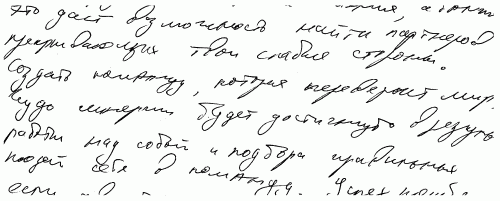 это даёт возможность найти партнеров
прикрывающих твои слабые стороны.
Создать команду, которая перевернет мир.
Чудо синергии будет достигнуто в результ
работы над собой и подбора правильных
людей себе в команду. Успех
если